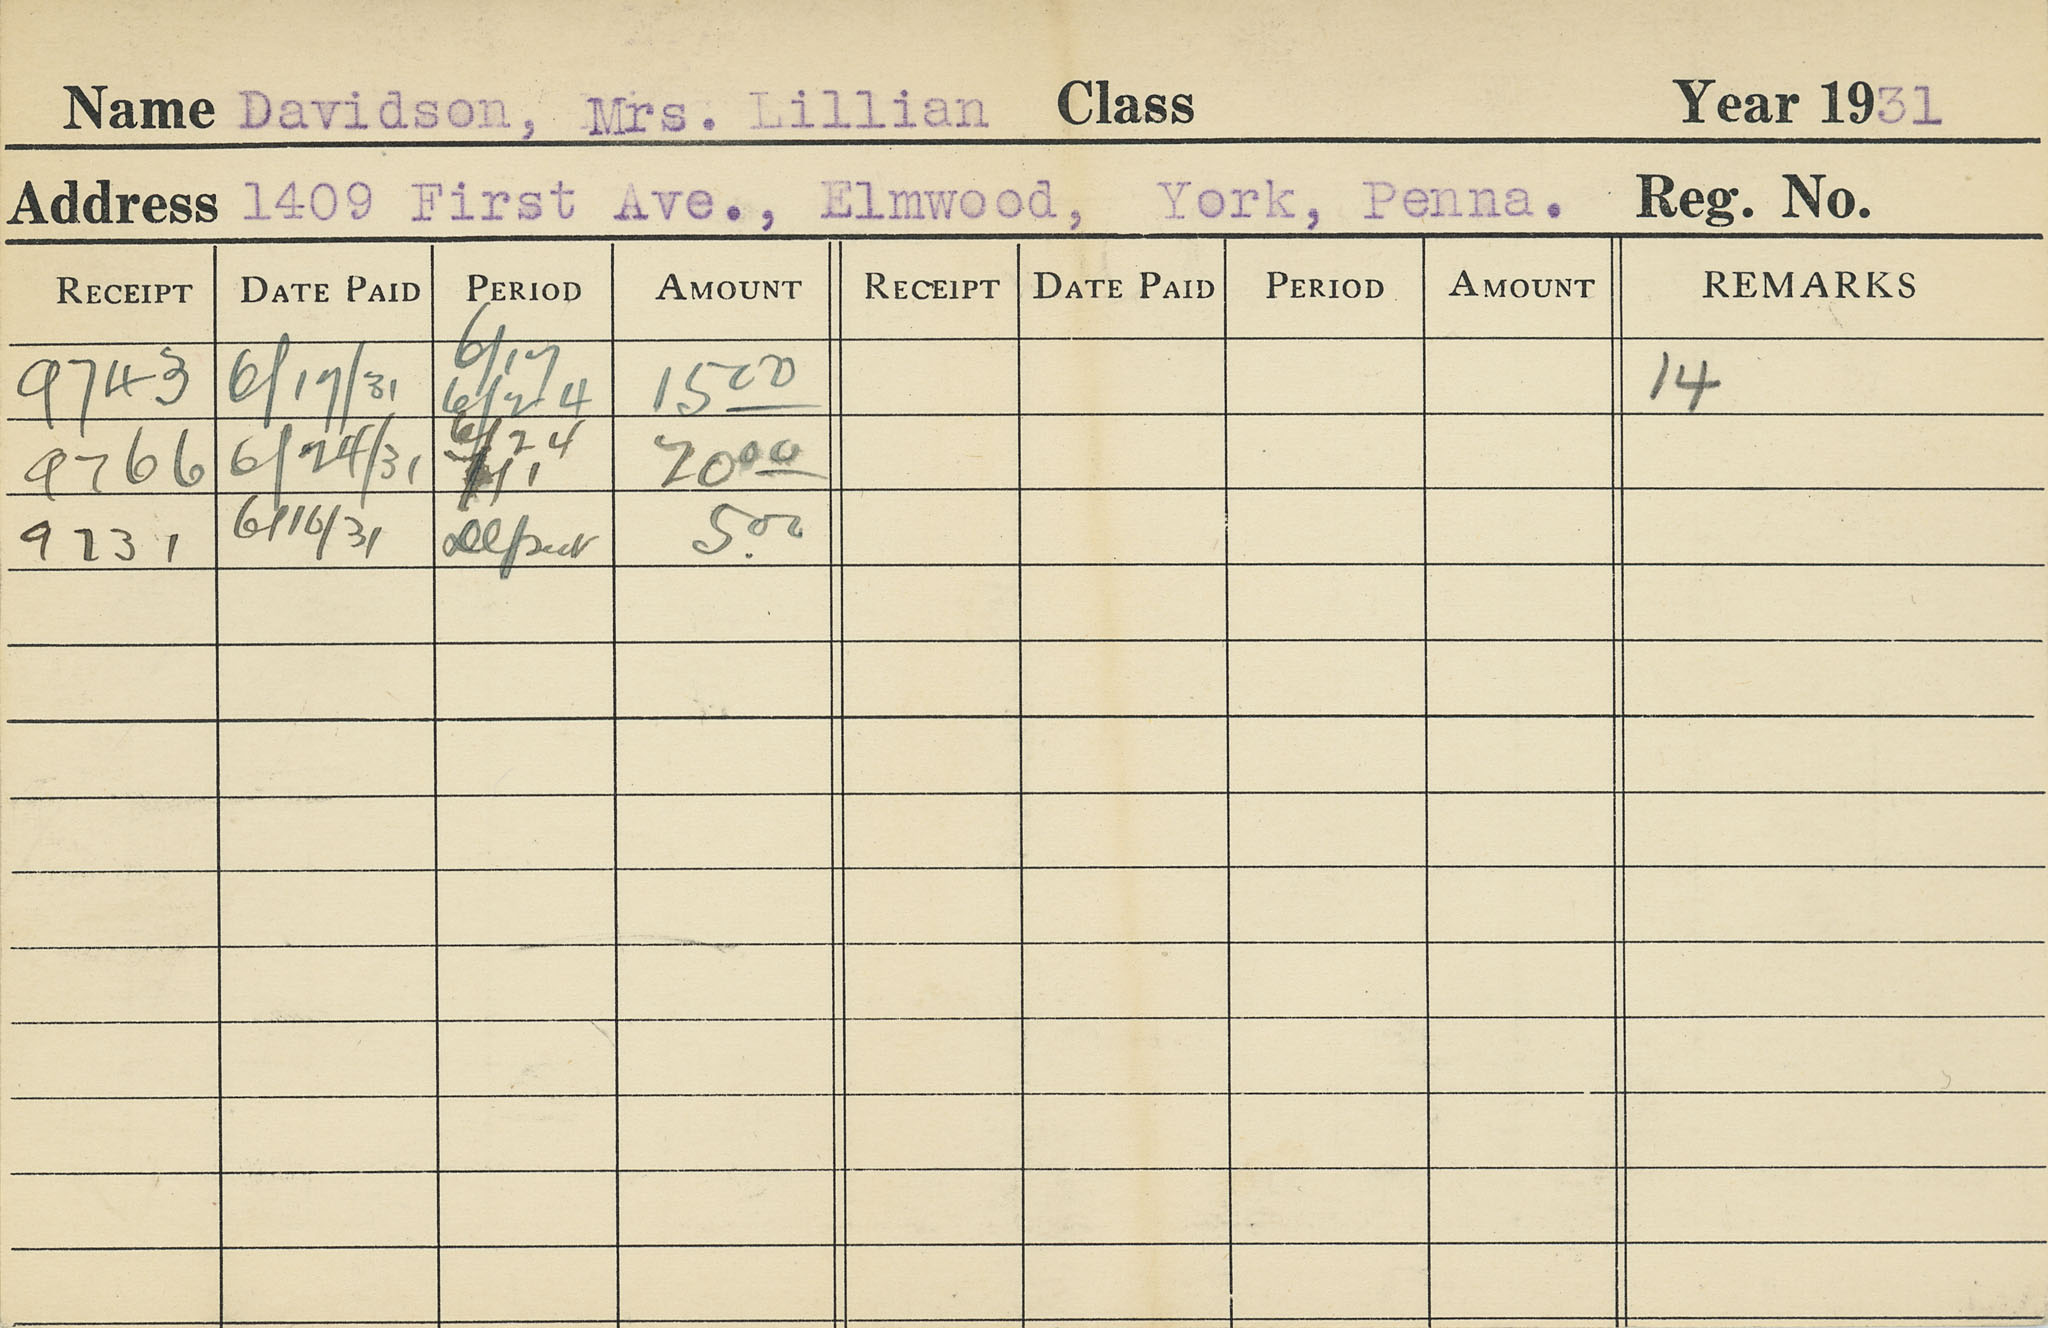 Name Davidson, Mrs. Lillian Class Year 1931
Address 1409 First Ave., Elmwood, York, Penna. Reg. No.
RECEIPT DATE PAID PERIOD AMOUNT RECEIPT DATE PAID PERIOD AMOUNT REMARKS
6/17
9743 6/17/31 6/24 15.00 14
6/24
9766 6/24/31 7/1 20.00
9731 6/16/31 5.00